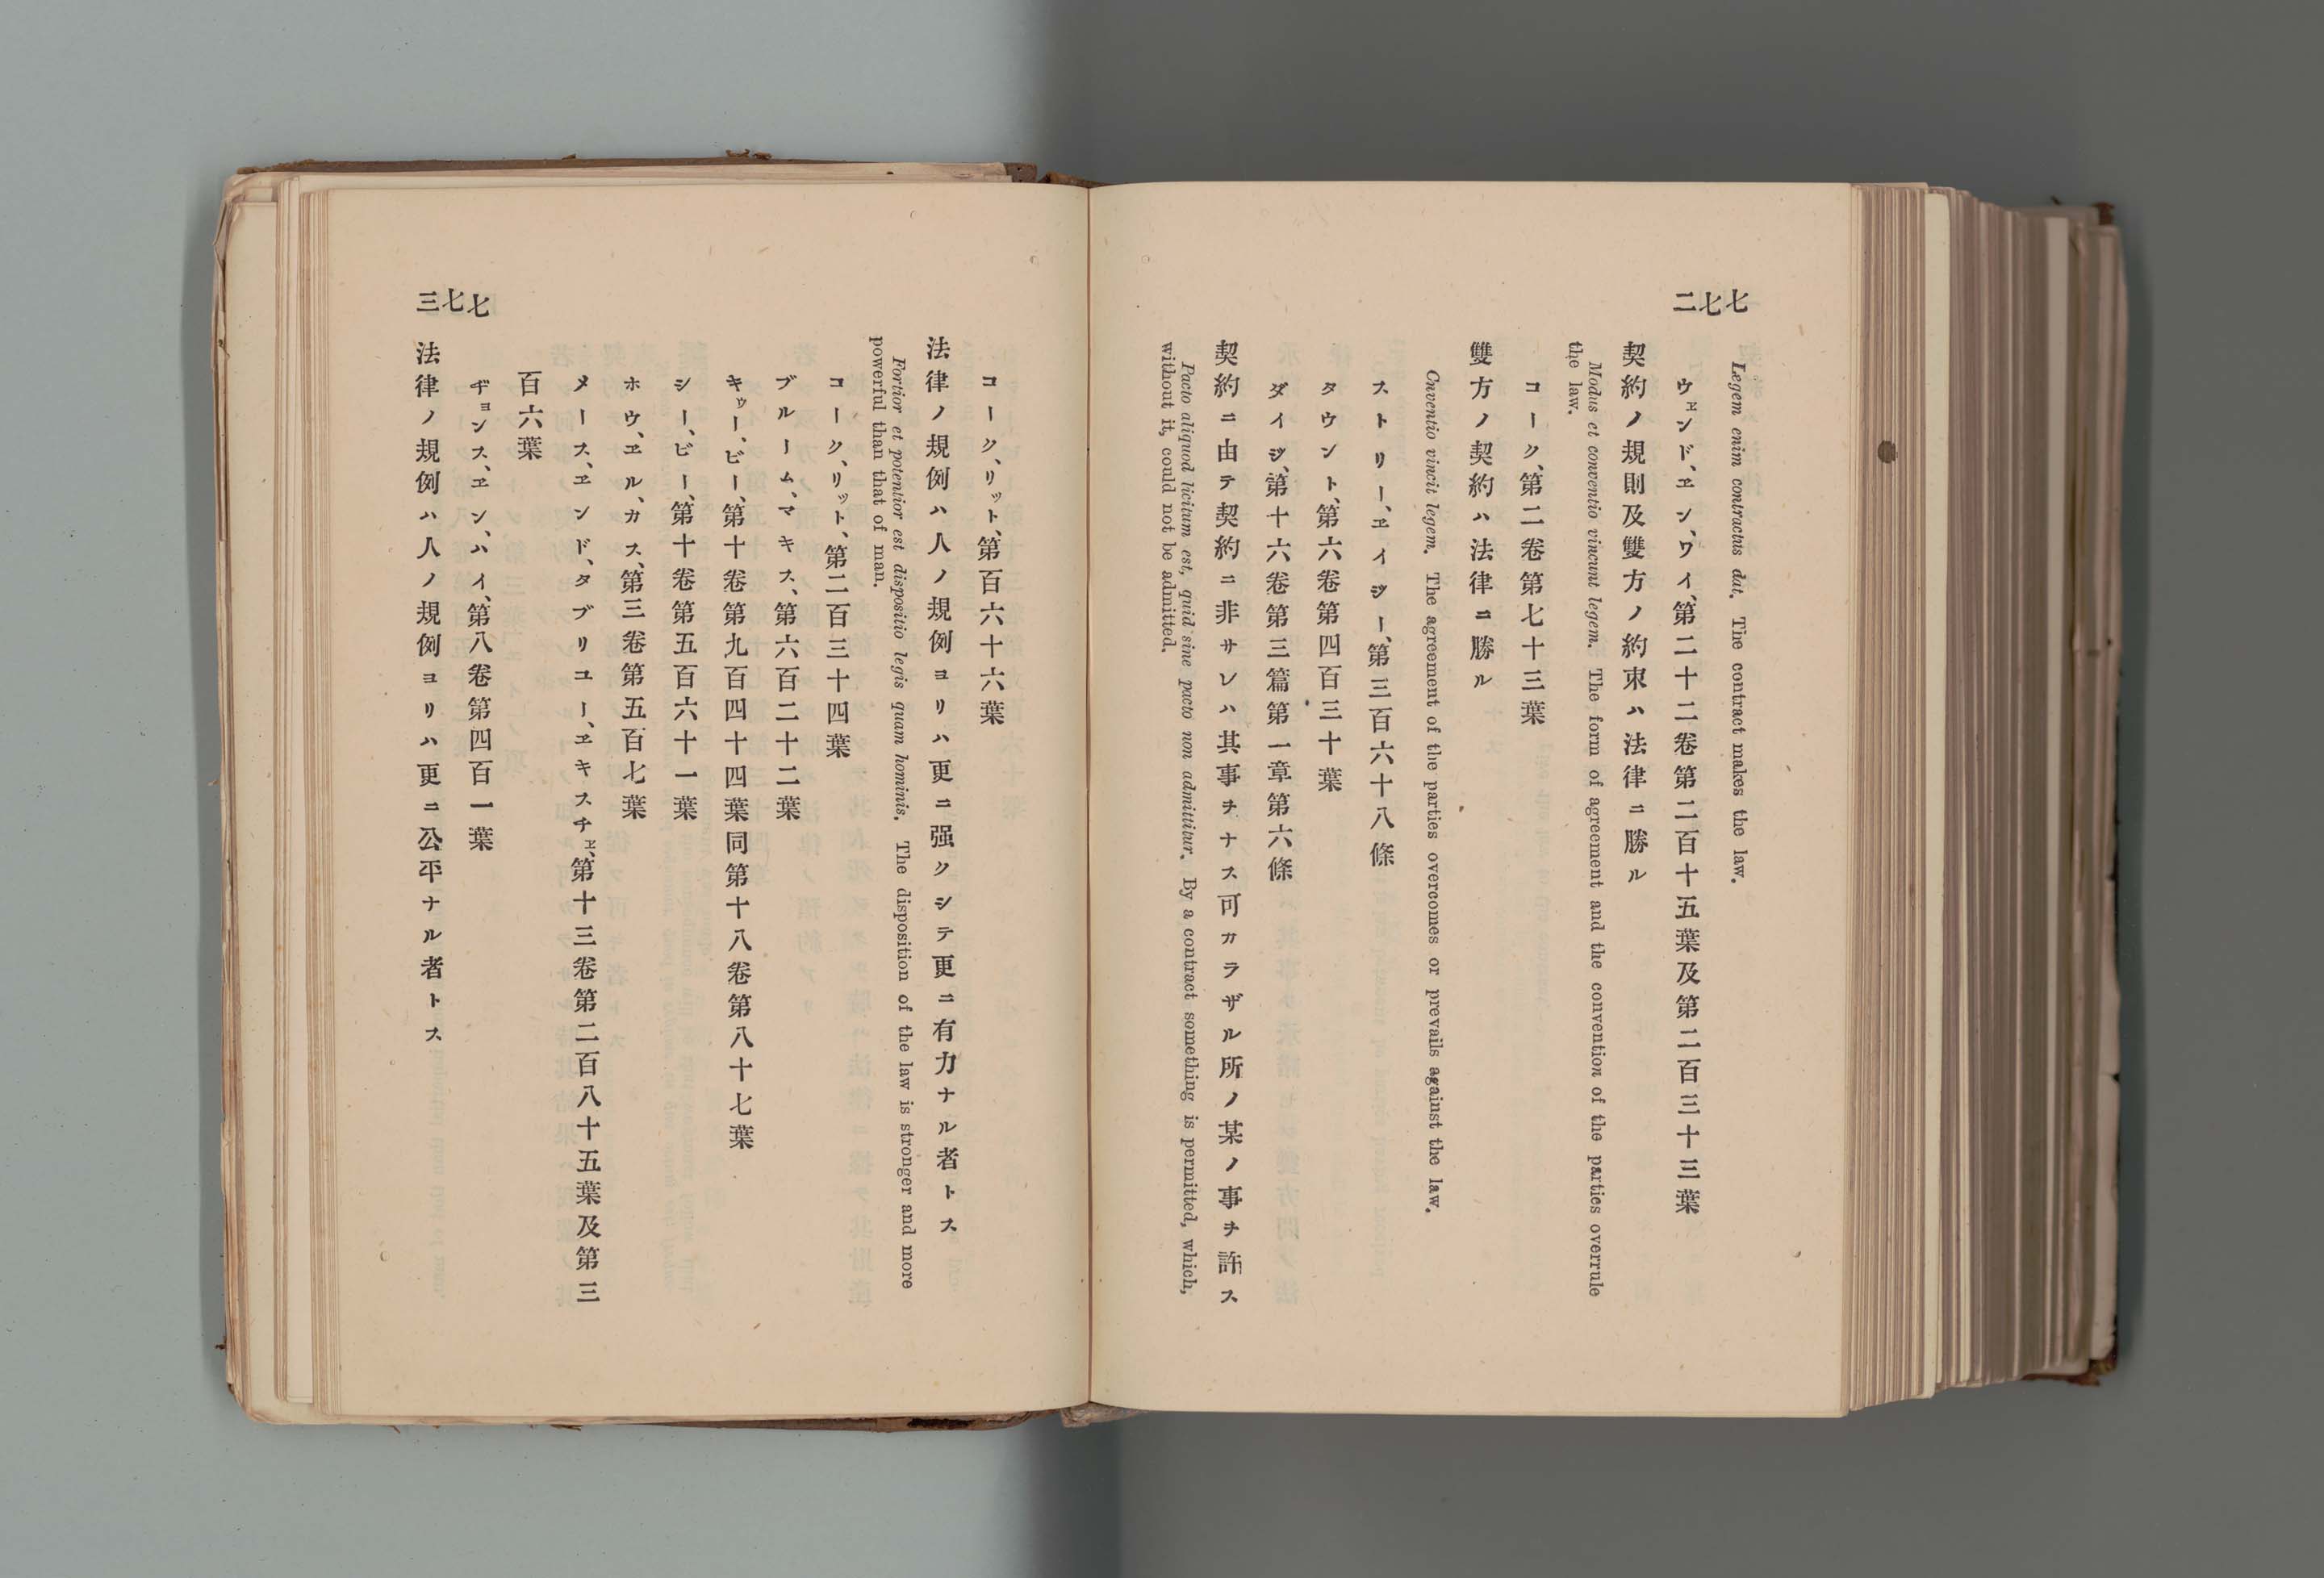 七七二
Legem enim contractus dat. The contract makes the law.
ウェンド、ヱン、ワイ、第二十二卷第二百十五葉及第二百三十三葉
契約ノ規則及雙方ノ約束ハ法律ニ勝ル
Modus et conventio vincunt legem. The form of agreement and the convention of the parties overrule
the law.
コーク、第二卷第七十三葉
雙方ノ契約ハ法律ニ勝ル
Cnventio vincit legem. The agreement of the parties overcomes or prevails against the law.
ストリー、ヱイジー、第三百六十八條
タウント、第六卷第四百三十葉
ダイジ、第十六卷第三篇第一章第六條
契約ニ由テ契約ニ非サレハ其事ヲナス可カラザル所ノ某ノ事ヲ許ス
Pacto aliquod licitum est, quid sine pacto non admittitur. By a contract something is permitted, which,
without it, could not be admitted.
コーク、リット、第百六十六葉
法律ノ規例ハ人ノ規例ヨリハ更ニ强クシテ更ニ有力ナル者トス
Fortior et potentior est dispositio legis quam hominis. The disposition of the law is stronger and more
powerful than that of man.
コーク、リット、第二百三十四葉
ブルーム、マキス、第六百二十二葉
キッー、ビー、第十卷第九百四十四葉同第十八卷第八十七葉
シー、ビー、第十卷第五百六十一葉
ホウ、ヱル、カス、第三卷第五百七葉
メース、ヱンド、タブリユー、ヱキスチェ、第十三卷第二百八十五葉及第三
百六葉
ヂョンス、ヱン、ハイ、第八卷第四百一葉
法律ノ規例ハ人ノ規例ヨリハ更ニ公平ナル者トス
七七三